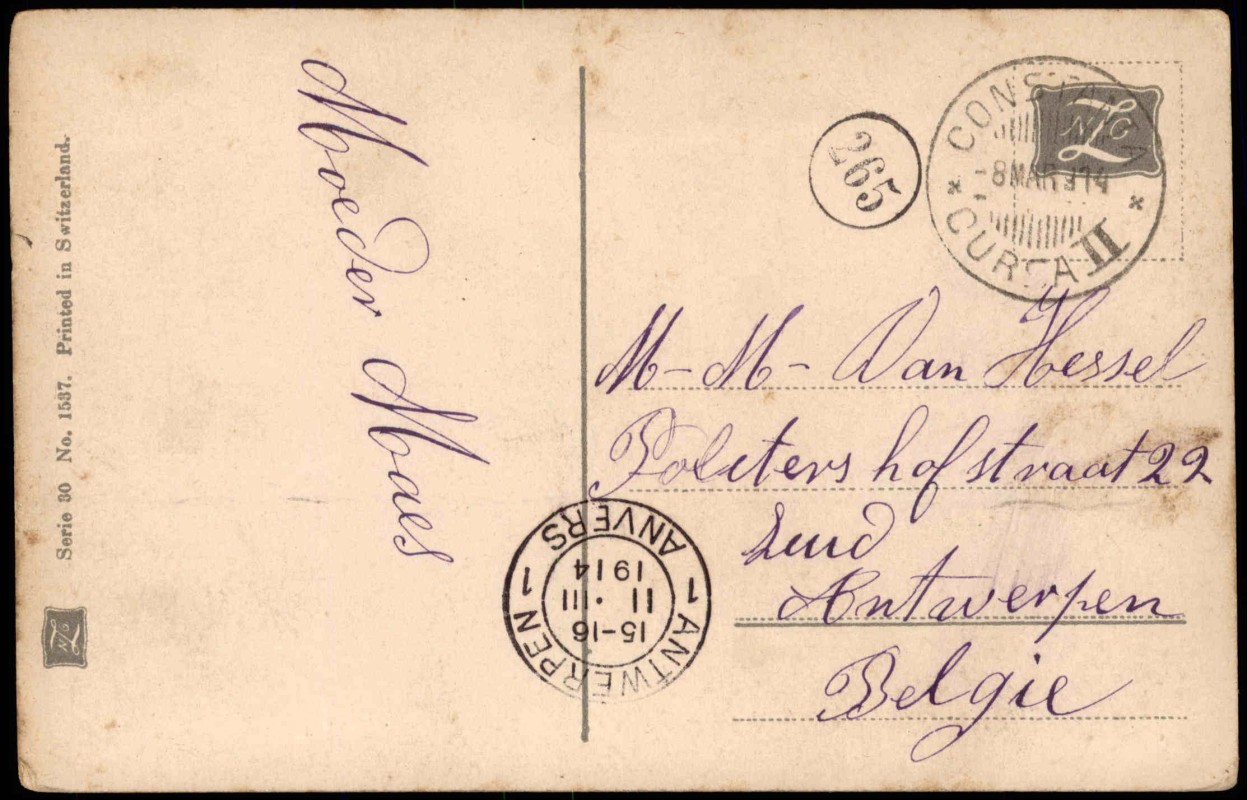 Serie 30 No. 1537. Printed in Switzerland.
NZG
Moeder Maes
265
CONSTANTA
-8 MAR 914
CURSA II
NZG
M-M- Van Hessel
hofstraat 22
Zuid
Antwerpen
Belgie
1 ANTWERPEN 1
15-16
11 · III
1914
ANVERS